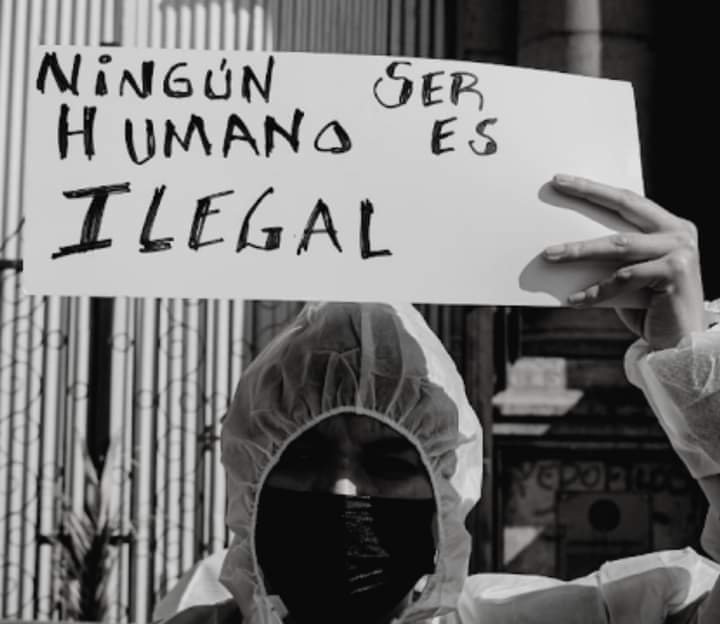 NINGÚN SER
HUMANO ES
ILEGAL